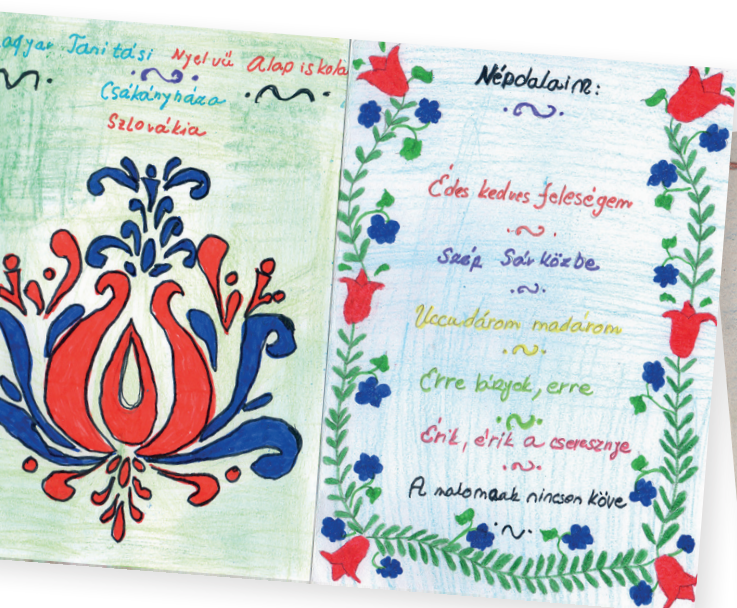 agyar Tanítási Nyelvű Alapiskola
Csákányháza
Szlovákia
Népdalaim:
Édes kedves feleségem
Szép Sárközbe
Uccu dárom madárom
Erre kizyok, erre
Érik, érik a cseresznye
A malomnak nincsen köve